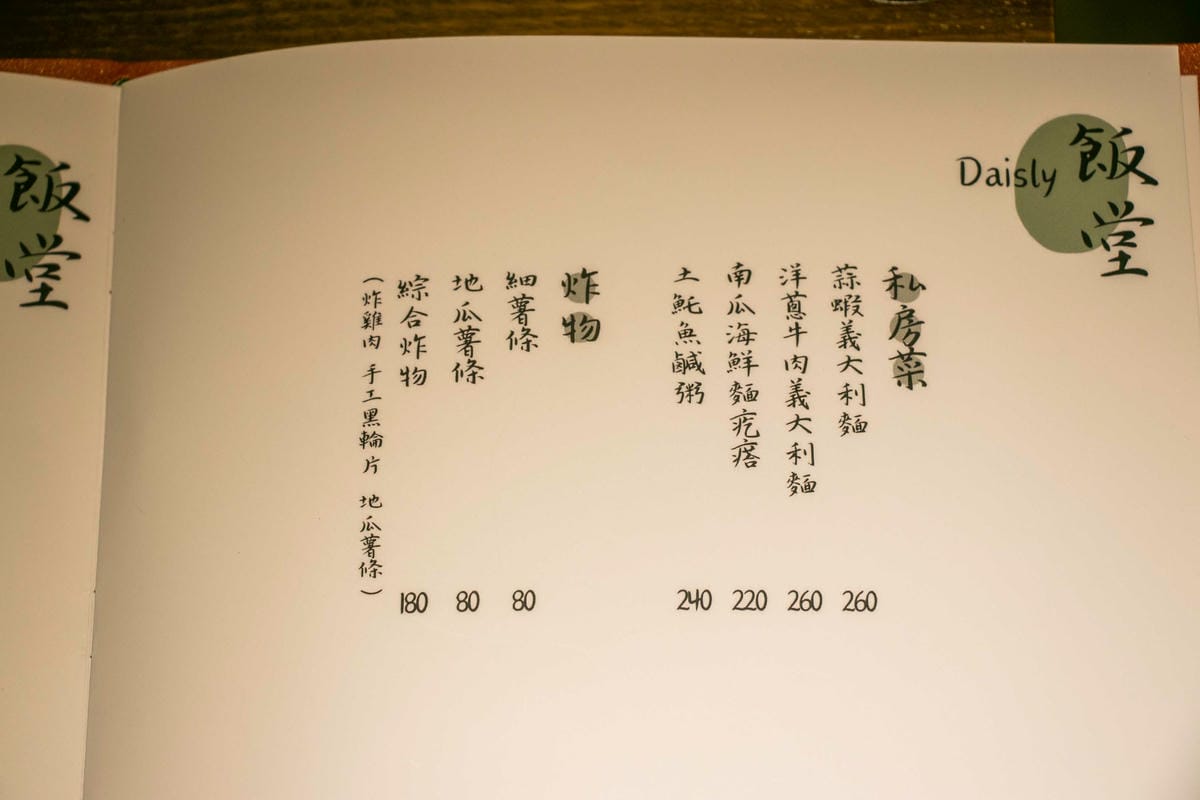 Daisly 飯堂
私房菜
蒜蝦義大利麵 260
洋蔥牛肉義大利麵 260
南瓜海鮮麵疙瘩 220
土魠魚鹹粥 240
炸物
細薯條 80
地瓜薯條 80
綜合炸物 180
（炸雞肉 手工黑輪片 地瓜薯條）
飯堂